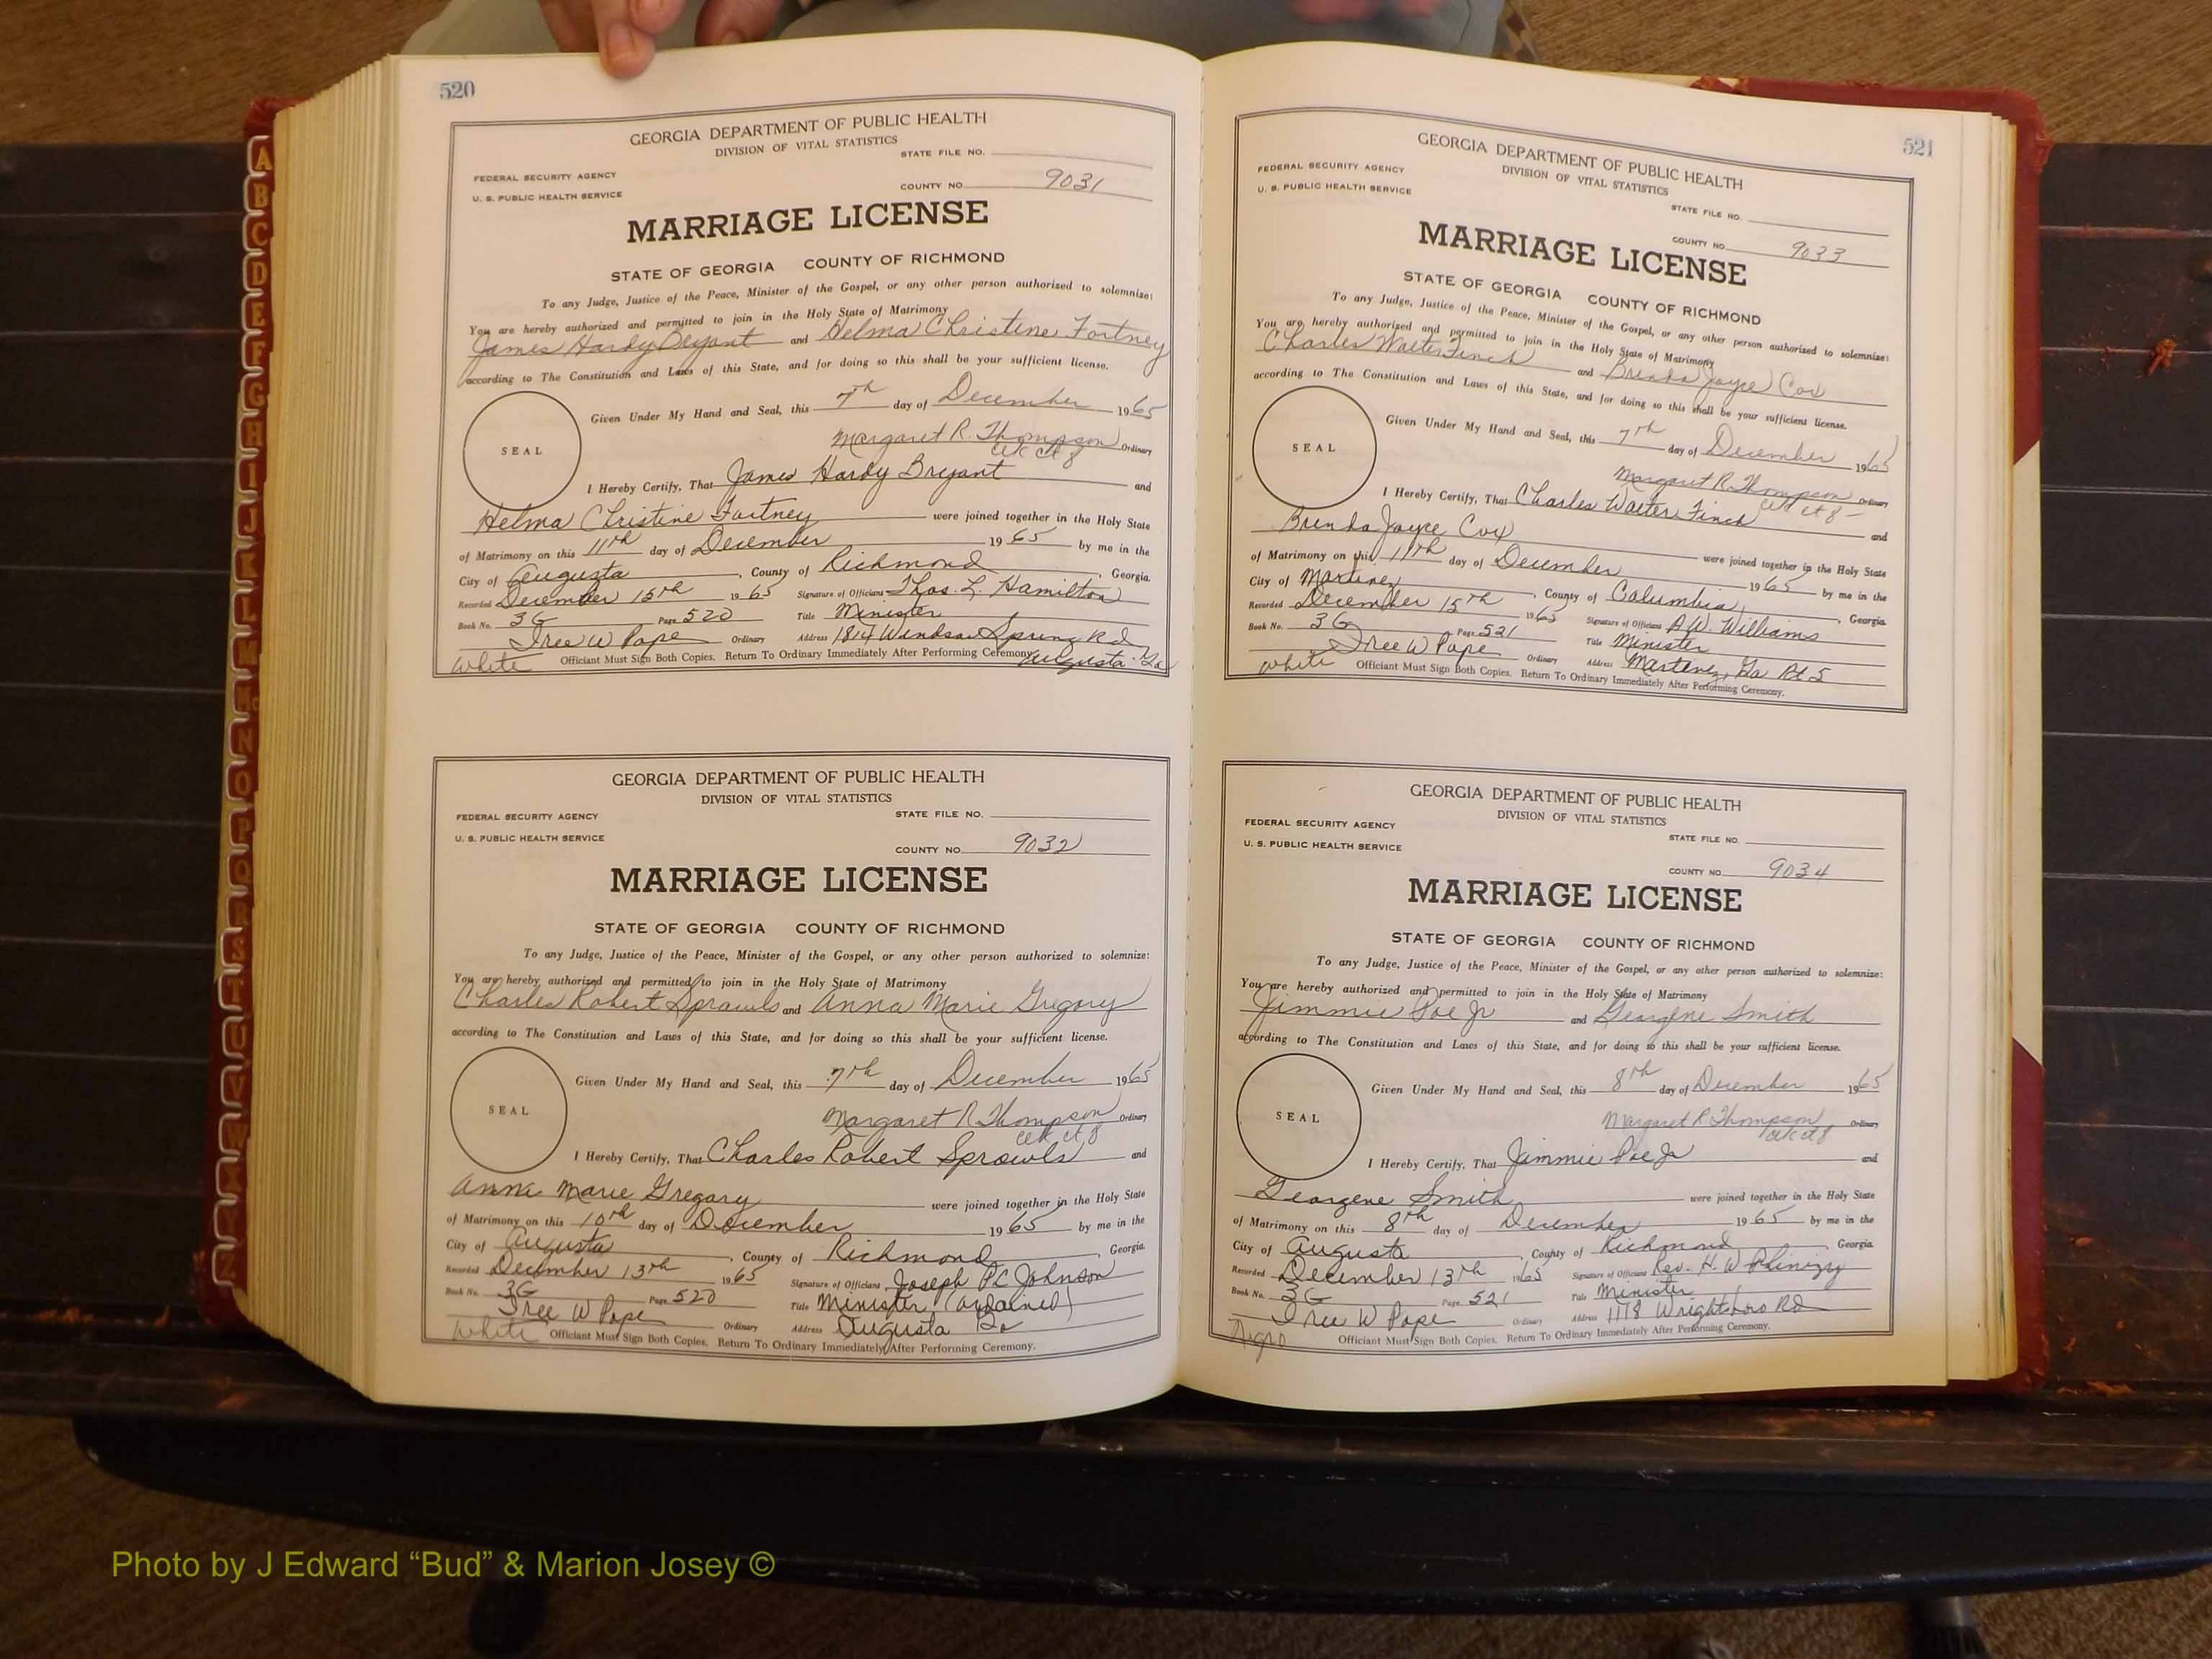 520
GEORGIA DEPARTMENT OF PUBLIC HEALTH
DIVISION OF VITAL STATISTICS
STATE FILE NO.
FEDERAL SECURITY AGENCY
U. S. PUBLIC HEALTH SERVICE
COUNTY NO. 9031
MARRIAGE LICENSE
STATE OF GEORGIA COUNTY OF RICHMOND
To any Judge, Justice of the Peace, Minister of the Gospel, or any other person authorized to solemnize:
You are hereby authorized and permitted to join in the Holy State of Matrimony
James Hardy Bryant and Helma Christine Fortney
according to The Constitution and Laws of this State, and for doing so this shall be your sufficient license.
SEAL
Given Under My Hand and Seal, this 7th day of December 1965
Margaret R. Thompson Ordinary
I Hereby Certify, That James Hardy Bryant and
Helma Christine Fortney were joined together in the Holy State
of Matrimony on this 11th day of December 1965 by me in the
City of Augusta, County of Richmond, Georgia.
Recorded December 15th 1965 Signature of Officiant Thos. L. Hamilton
Book No. 3G Page 520 Title Minister
Tree W Pope Ordinary Address 1814 Windsor Spring Rd
Augusta Ga
White Officiant Must Sign Both Copies. Return To Ordinary Immediately After Performing Ceremony.
GEORGIA DEPARTMENT OF PUBLIC HEALTH
DIVISION OF VITAL STATISTICS
STATE FILE NO.
FEDERAL SECURITY AGENCY
U. S. PUBLIC HEALTH SERVICE
COUNTY NO. 9032
MARRIAGE LICENSE
STATE OF GEORGIA COUNTY OF RICHMOND
To any Judge, Justice of the Peace, Minister of the Gospel, or any other person authorized to solemnize:
You are hereby authorized and permitted to join in the Holy State of Matrimony
Charles Robert Sprawls and Anna Marie Gregory
according to The Constitution and Laws of this State, and for doing so this shall be your sufficient license.
SEAL
Given Under My Hand and Seal, this 7th day of December 1965
Margaret R Thompson Ordinary
I Hereby Certify, That Charles Robert Sprawls and
Anna Marie Gregory were joined together in the Holy State
of Matrimony on this 10th day of December 1965 by me in the
City of Augusta, County of Richmond, Georgia.
Recorded December 13th 1965 Signature of Officiant Joseph P.C Johnson
Book No. 3G Page 520 Title Minister (ordained)
Tree W Pope Ordinary Address Augusta Ga
White Officiant Must Sign Both Copies. Return To Ordinary Immediately After Performing Ceremony.
521
GEORGIA DEPARTMENT OF PUBLIC HEALTH
DIVISION OF VITAL STATISTICS
FEDERAL SECURITY AGENCY
U. S. PUBLIC HEALTH SERVICE
STATE FILE NO.
COUNTY NO. 9033
MARRIAGE LICENSE
STATE OF GEORGIA COUNTY OF RICHMOND
To any Judge, Justice of the Peace, Minister of the Gospel, or any other person authorized to solemnize:
You are hereby authorized and permitted to join in the Holy State of Matrimony
Charles Walter Finch and Brenda Joyce Cox
according to The Constitution and Laws of this State, and for doing so this shall be your sufficient license.
SEAL
Given Under My Hand and Seal, this 7th day of December 1965
Margaret R. Thompson Ordinary
I Hereby Certify, That Charles Walter Finch and
Brenda Joyce Cox were joined together in the Holy State
of Matrimony on this 11th day of December 1965 by me in the
City of Martinez, County of Columbia, Georgia.
Recorded December 15th 1965 Signature of Officiant A.W. Williams
Book No. 3G Page 521 Title Minister
Tree W Pope Ordinary Address Martinez, Ga Rt 5
White Officiant Must Sign Both Copies. Return To Ordinary Immediately After Performing Ceremony.
GEORGIA DEPARTMENT OF PUBLIC HEALTH
DIVISION OF VITAL STATISTICS
FEDERAL SECURITY AGENCY
U. S. PUBLIC HEALTH SERVICE
STATE FILE NO.
COUNTY NO. 9034
MARRIAGE LICENSE
STATE OF GEORGIA COUNTY OF RICHMOND
To any Judge, Justice of the Peace, Minister of the Gospel, or any other person authorized to solemnize:
You are hereby authorized and permitted to join in the Holy State of Matrimony
Jimmie Poe Jr and Georgene Smith
according to The Constitution and Laws of this State, and for doing so this shall be your sufficient license.
SEAL
Given Under My Hand and Seal, this 8th day of December 1965
Margaret R Thompson Ordinary
I Hereby Certify, That Jimmie Poe Jr and
Georgene Smith were joined together in the Holy State
of Matrimony on this 8th day of December 1965 by me in the
City of Augusta, County of Richmond, Georgia.
Recorded December 13th 1965 Signature of Officiant Rev. H. W Phinizy
Book No. 3G Page 521 Title Minister
Tree W Pope Ordinary Address 1178 Wrightsboro Rd
Officiant Must Sign Both Copies. Return To Ordinary Immediately After Performing Ceremony.
A
B
C
D
E
F
G
H
I
J
K
L
M
Mc
N
O
P
Q
R
S
T
U
V
W
Photo by J Edward “Bud” & Marion Josey ©